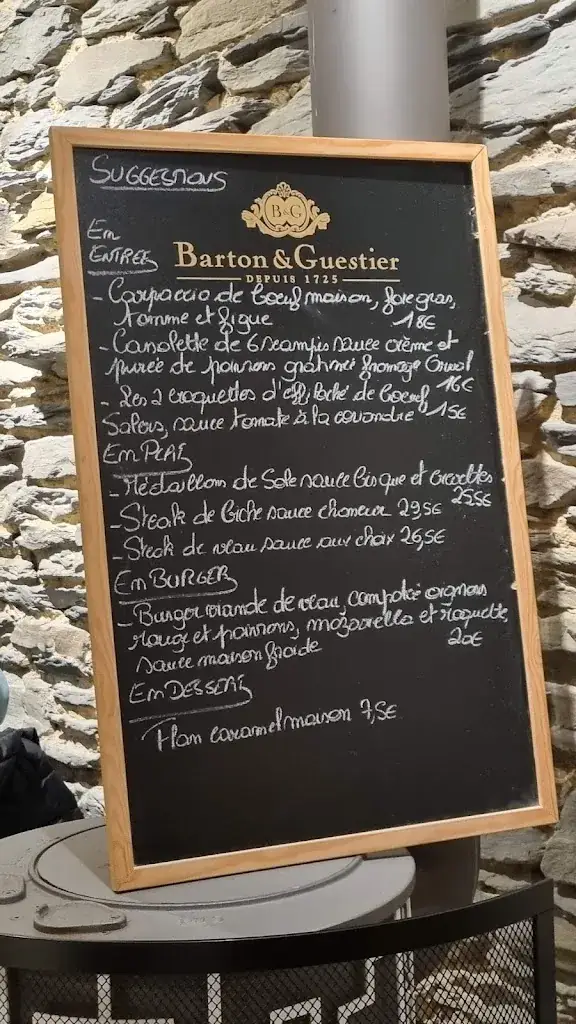 SUGGESTIONS
B&G
Barton & Guestier
DEPUIS 1725
En
ENTREE
- Carpaccio de boeuf maison, foie gras,
tomme et figue 18€
- Cassolette de 6 scampis sauce crème et
purée de poivrons gratinée fromage
16€
- Les 2 croquettes d'effiloché de boeuf
Salers, sauce tomate à la coriandre 15€
En PLAT
- Médaillon de Sole sauce bisque et crevettes
25,5€
- Steak de biche sauce chasseur 29,5€
- Steak de veau sauce aux choix 26,5€
En BURGER
- Burger viande de veau, compoté oignons
rouge et poivrons, mozzarella et roquette,
sauce maison froide 20€
En DESSERT
Flan caramel maison 7,5€